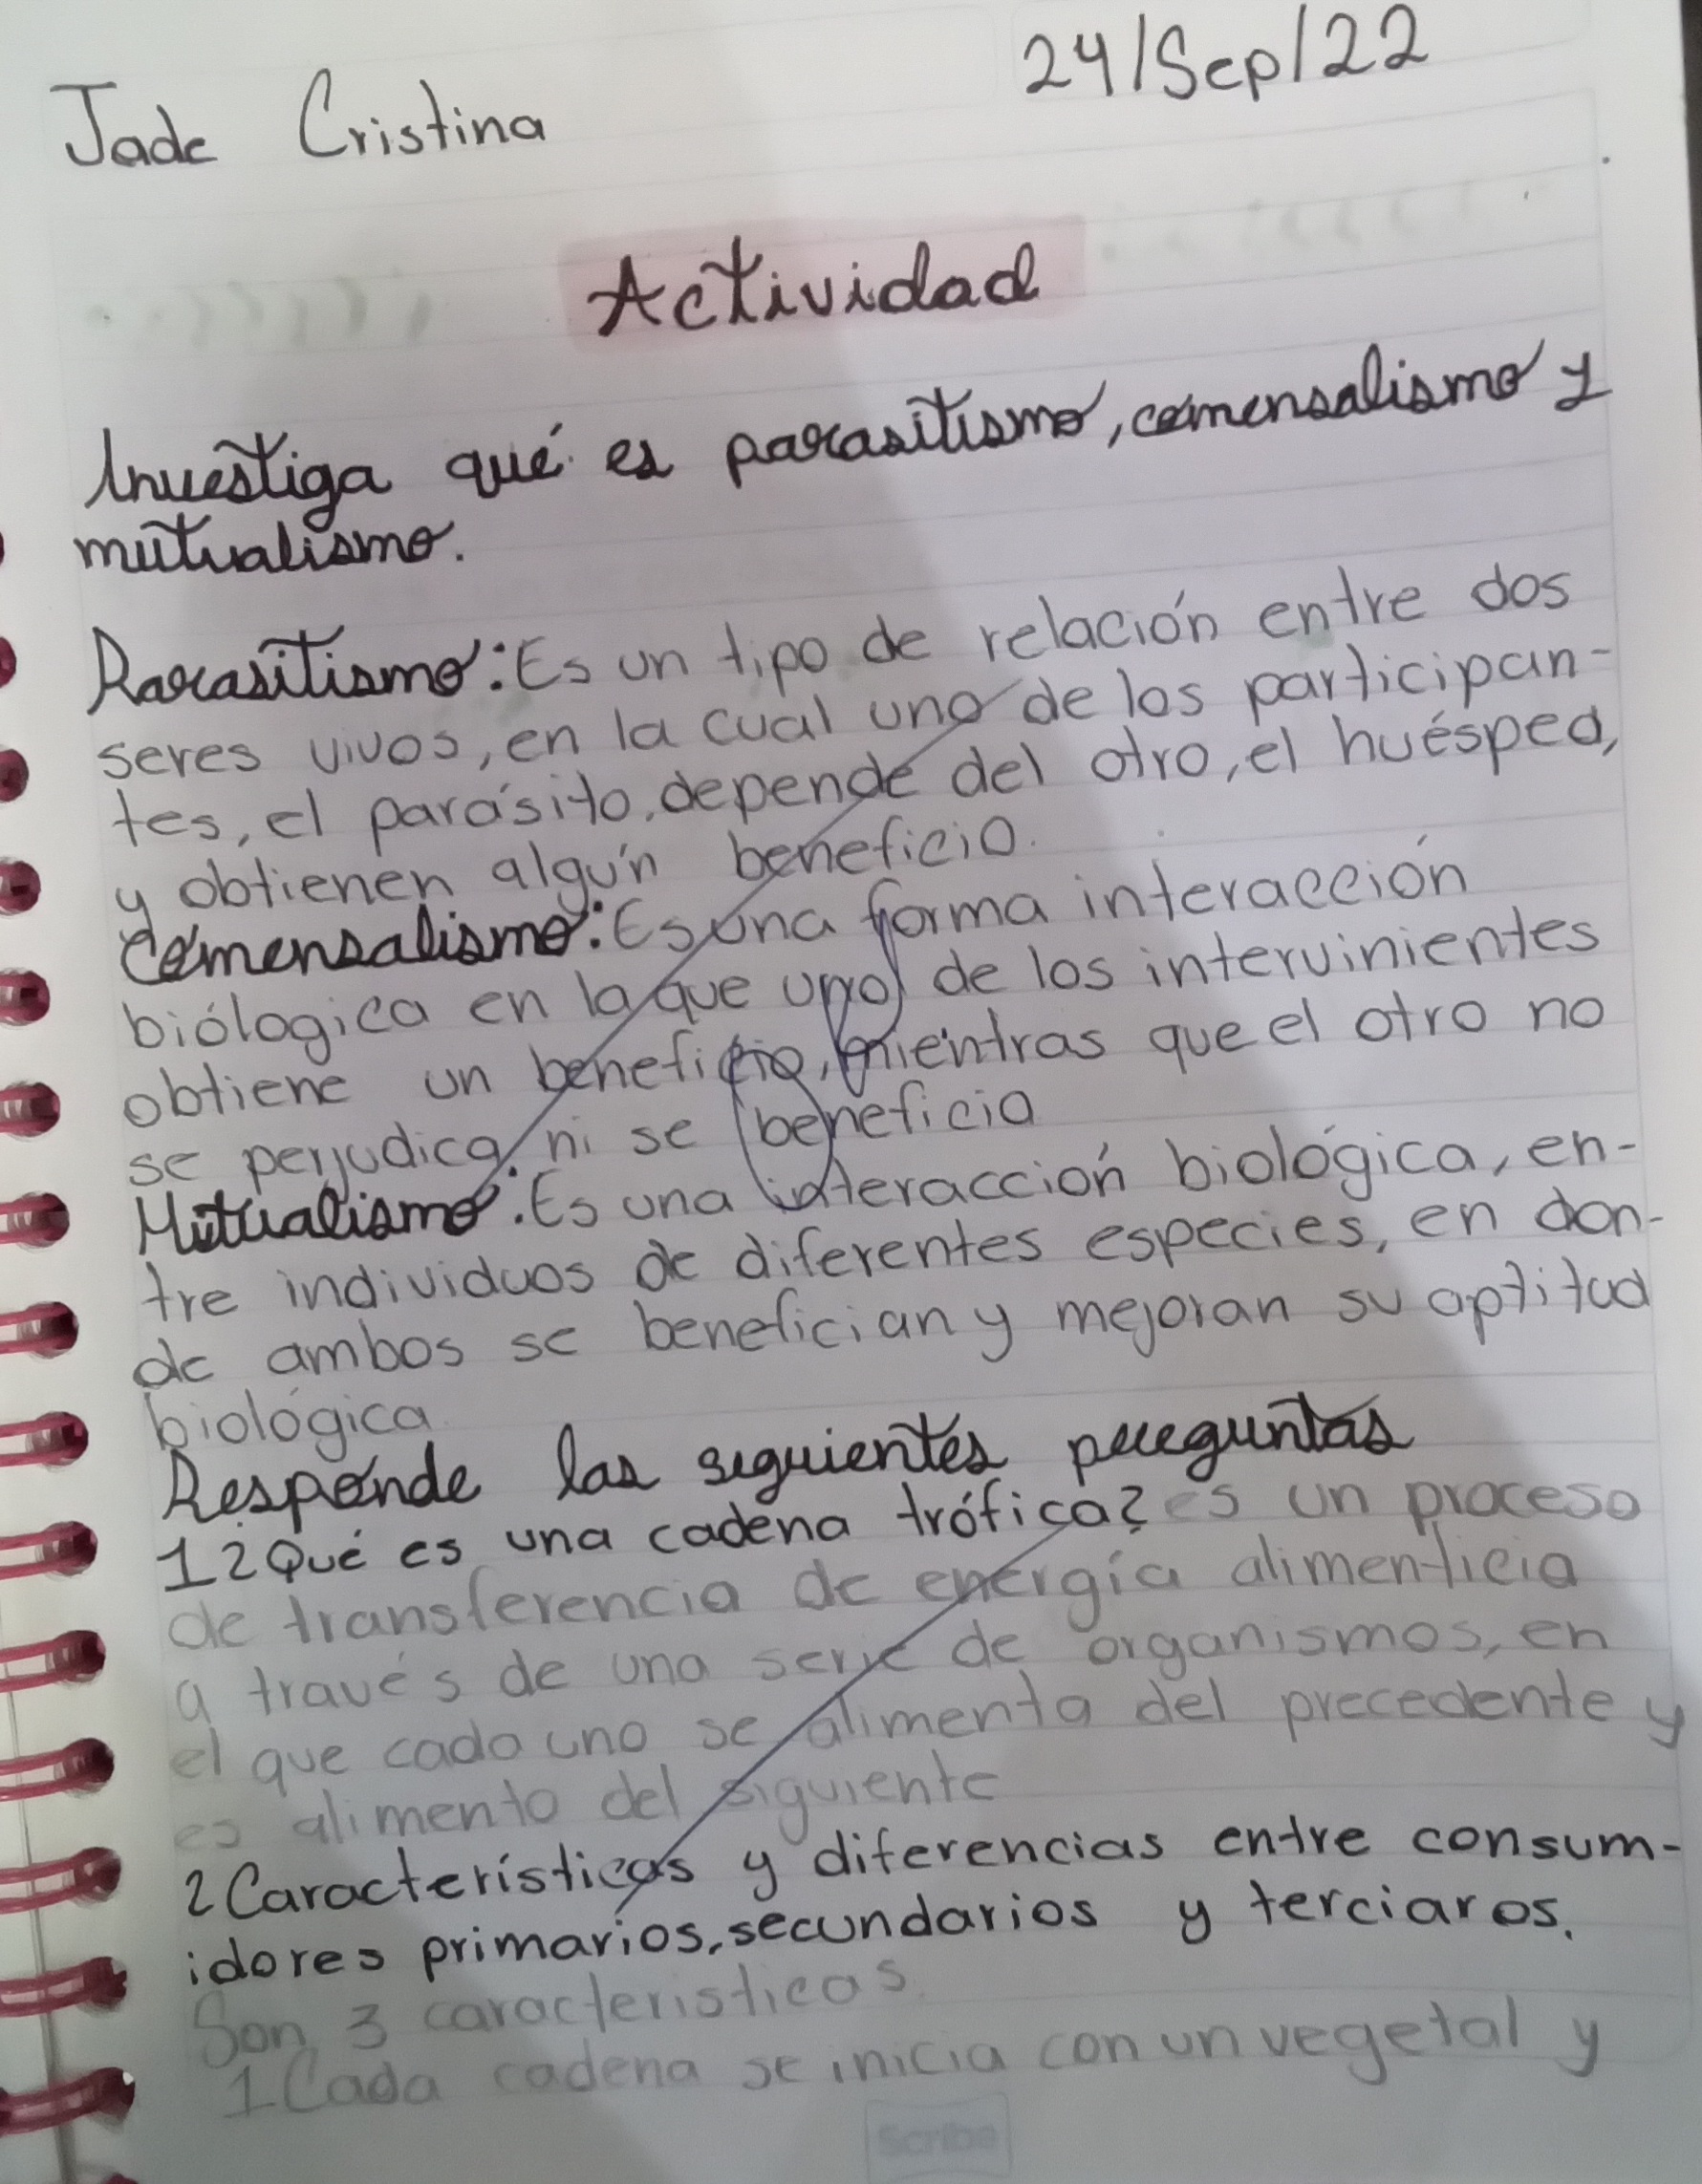 Jade Cristina
24/Sep/22
Actividad
Investiga qué es parasitismo, comensalismo y
mutualismo.
Parasitismo: Es un tipo de relación entre dos
seres vivos, en la cual uno de los participan-
tes, el parásito, depende del otro, el huésped,
y obtienen algún beneficio.
Comensalismo: Es una forma interacción
biólogica en la que uno de los intervinientes
obtiene un beneficio, mientras que el otro no
se perjudica ni se beneficia
Mutualismo: Es una interacción biológica, en-
tre individuos de diferentes especies, en don-
de ambos se benefician y mejoran su aptitud
biológica
Responde las siguientes preguntas
1 ¿Qué es una cadena trófica? es un proceso
de transferencia de energía alimenticia
a través de una serie de organismos, en
el que cada uno se alimenta del precedente y
es alimento del siguiente
2 Características y diferencias entre consum-
idores primarios, secundarios y terciaros.
Son 3 caracteristicas.
1 Cada cadena se inicia con un vegetal y
Scribe